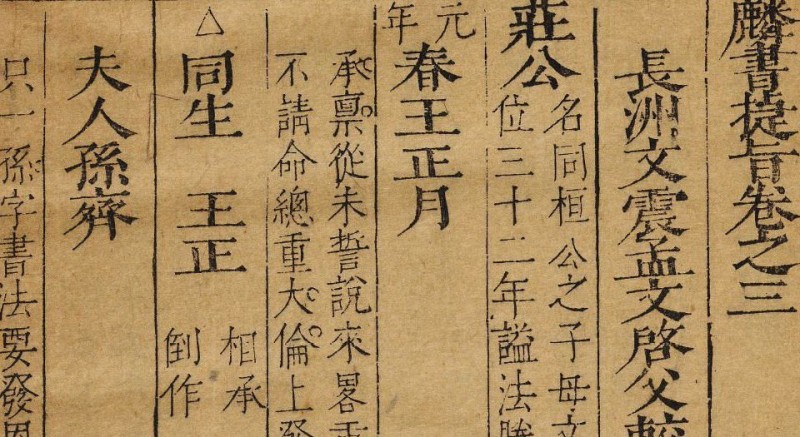 麟書捷旨卷之三
長洲文震孟文啓父
莊公
名同桓公之子母文
位三十二年謚法勝
元年
春王正月
承禀從未誓說來畧
不請命總重大倫上發
△同生 王正
相承
倒作
夫人孫齊
只一孫字書法要發